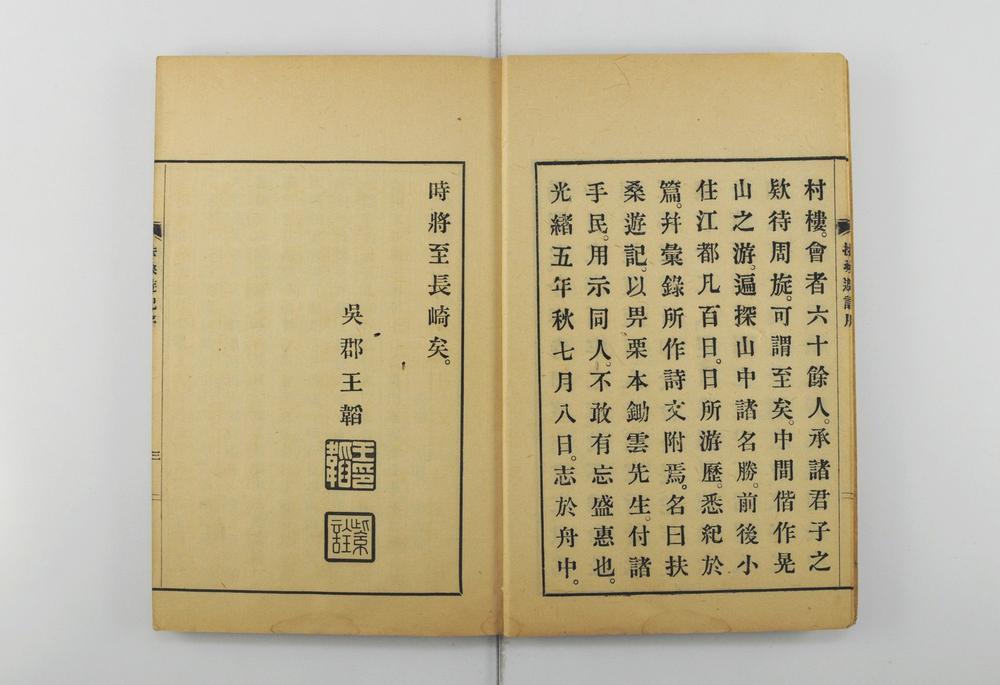 村樓。會者六十餘人。承諸君子之
欵待周旋。可謂至矣。中間偕作晃
山之游。遍探山中諸名勝。前後小
住江都凡百日。日所游歷。悉紀於
篇。幷彙錄所作詩文附焉。名曰扶
桑遊記。以畀栗本鋤雲先生。付諸
手民。用示同人。不敢有忘盛惠也。
光緖五年秋七月八日。志於舟中。
時將至長崎矣。
吳郡王韜
王韜印
紫詮
扶桑遊記序
三